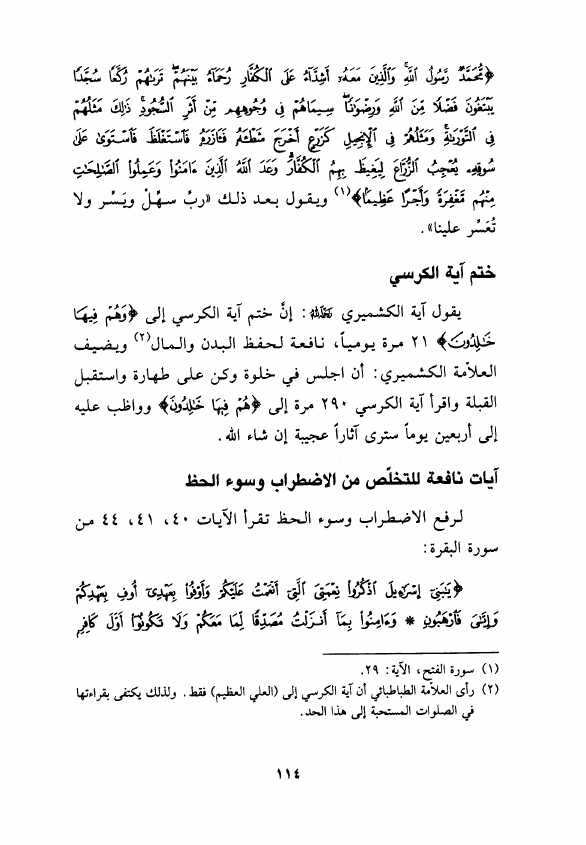 ﴿مُّحَمَّدٌ رَّسُولُ اللَّهِ وَالَّذِينَ مَعَهُ أَشِدَّاءُ عَلَى الْكُفَّارِ رُحَمَاءُ بَيْنَهُمْ تَرَاهُمْ رُكَّعًا سُجَّدًا
يَبْتَغُونَ فَضْلًا مِّنَ اللَّهِ وَرِضْوَانًا سِيمَاهُمْ فِي وُجُوهِهِم مِّنْ أَثَرِ السُّجُودِ ذَلِكَ مَثَلُهُمْ
فِي التَّوْرَاةِ وَمَثَلُهُمْ فِي الْإِنجِيلِ كَزَرْعٍ أَخْرَجَ شَطْئَهُ فَآزَرَهُ فَاسْتَغْلَظَ فَاسْتَوَى عَلَى
سُوقِهِ يُعْجِبُ الزُّرَّاعَ لِيَغِيظَ بِهِمُ الْكُفَّارَ وَعَدَ اللَّهُ الَّذِينَ ءَامَنُوا وَعَمِلُوا الصَّالِحَاتِ
مِنْهُم مَّغْفِرَةً وَأَجْرًا عَظِيمًا﴾(١) ويقول بعد ذلك «ربِّ سهِّلْ ويَسِّر ولا
تُعَسِّر علينا».
ختم آية الكرسي
يقول آية الكشميري رحمه الله: إنَّ ختم آية الكرسي إلى ﴿وَهُمْ فِيهَا
خَالِدُونَ﴾ ٢١ مرة يومياً، نافعة لحفظ البدن والمال(٢) ويضيف
العلاّمة الكشميري: أن اجلس في خلوة وكن على طهارة واستقبل
القبلة واقرأ آية الكرسي ٢٩٠ مرة إلى ﴿هُمْ فِيهَا خَالِدُونَ﴾ وواظب عليه
إلى أربعين يوماً سترى آثاراً عجيبة إن شاء الله.
آيات نافعة للتخلّص من الاضطراب وسوء الحظ
لرفع الاضطراب وسوء الحظ تقرأ الآيات ٤٠، ٤١، ٤٤ من
سورة البقرة:
﴿يَبَنِي إِسْرَءِيلَ اذْكُرُوا نِعْمَتِيَ الَّتِي أَنْعَمْتُ عَلَيْكُمْ وَأَوْفُوا بِعَهْدِي أُوفِ بِعَهْدِكُمْ
وَإِيَّايَ فَارْهَبُونِ * وَءَامِنُوا بِمَا أَنزَلْتُ مُصَدِّقًا لِّمَا مَعَكُمْ وَلَا تَكُونُوا أَوَّلَ كَافِرٍ
(١) سورة الفتح، الآية: ٢٩.
(٢) رأى العلاّمة الطباطبائي أن آية الكرسي إلى (العلي العظيم) فقط. ولذلك يكتفى بقراءتها
في الصلوات المستحبة إلى هذا الحد.
١١٤